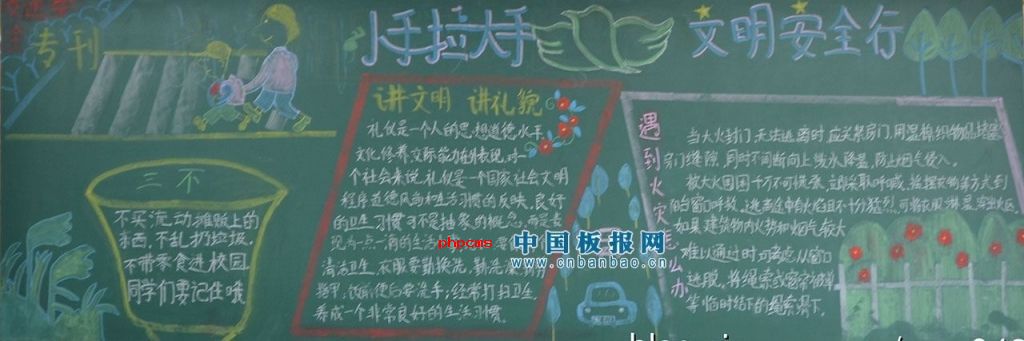 专刊
小手拉大手
文明安全行
三不
不买流动摊贩上的
东西,不乱扔垃圾,
不带零食进校园
同学们要记住哦
讲文明 讲礼貌
礼仪是一个人的思想道德水平
文化修养交际能力的外表现,对一
个社会来说,礼仪是一个国家社会文明
程度道德风尚和生活习惯的反映,良好
的卫生习惯可不是抽象的概念,而是
现在一点一滴的生活
清洁卫生,衣服要勤换洗,勤洗澡
饭前便后要洗手;经常打扫卫生,
养成一个非常良好的生活习惯。
phpcms
中国板报网
www.cnbanbao.cn
遇到火灾怎么办
当大火封门,无法逃离时,应关紧房门,用湿棉织物
房门缝隙,同时不间断向上浇水降温,防止烟气侵入。
被大火围困千万不可慌乱,立即采取呼喊,
向窗口呼救,逃
如果建筑物内火势和烟气较大
难以通过时,可考虑从窗口
逃脱,将绳索或窗帘、被单
等临时结下的绳索滑下。